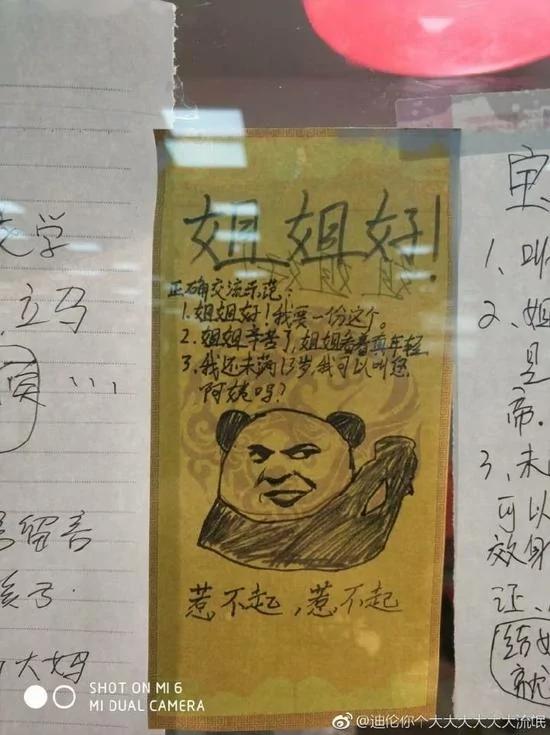 姐姐好!
正确交流示范:
1.姐姐好!我要一份这个。
2.姐姐辛苦了,姐姐看着真年轻
3.我还未满13岁,我可以叫您
阿姨吗?
惹不起,惹不起
立马
留言
大妈
1、叫
2、姐
是
帝.
3、未
可以
效身
证
就
SHOT ON MI 6
MI DUAL CAMERA
@迪伦你个大大大大大大流氓